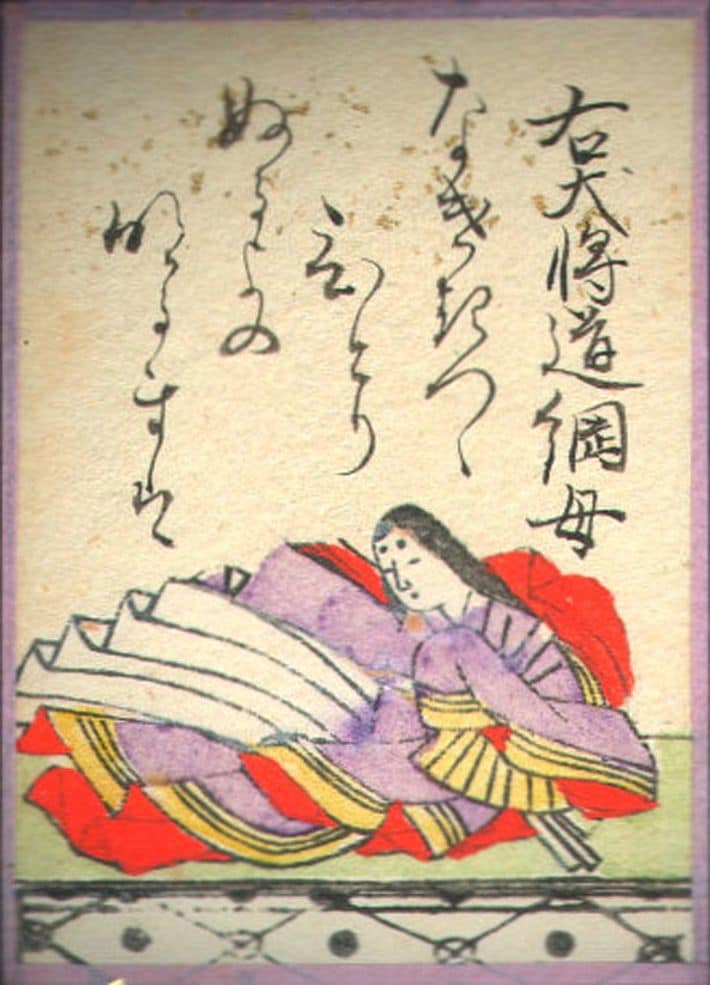 右大将道綱母
なけきつゝ
ひとり
ぬるよの
明くるまは